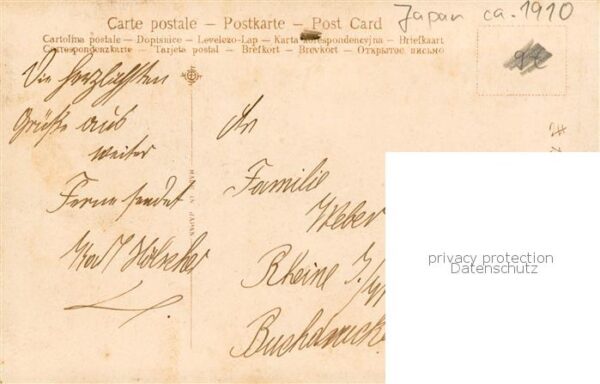 Carte postale – Postkarte – Post Card
Japan ca. 1910
Cartolina postale – Dopisnice – Levelezo-Lap – Karta korespondencyjna – Briefkaart
Correspondenzkarte – Tarjeta postal – Brefkort – Brevkort – Открытое письмо
Die herzlichsten
Grüße aus
weiter
Ferne sendet
Karl Hölscher
MADE IN JAPAN
An
Familie
Weber
Rheine
privacy protection
Datenschutz